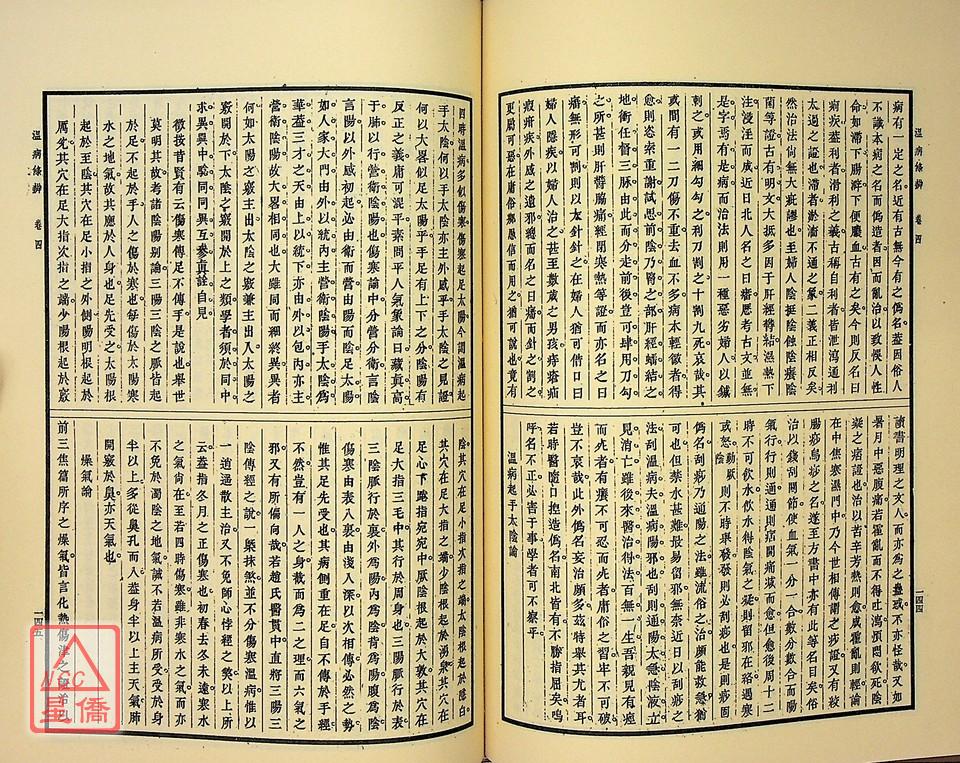 溫病條辨　卷四
病有一定之名近有古無今有之偽名蓋因俗人
不識本病之名而偽造者因而亂治以致慢人性
命如滯下腸澼下便膿血古有之矣今則反名曰
痢疾蓋利者滑利之義古稱自利者皆泄瀉通利
太過之證也滯者淤澀不通之象二義正相反矣
然治法尚無大疵謬也至婦人陰挺陰蝕陰癢陰
菌等證古有明文大抵多因于肝經鬱結濕熱下
注浸淫而成近日北人名之曰歷考古文並無
是字焉有是病而治法則用一種惡劣婦人以鍼
刺之或用細勾勾之利刀割之十割九死哀哉其
或間有一二刀傷不重去血不多病本輕微者得
愈則恣索重謝試思前陰乃腎之部肝經蟠結之
地衝任督三脈由此而分走前後豈可肆用刀勾
之所甚則肝鬱脇痛經閉寒熱等證而亦名之曰
無形可割則以大針針之在婦人猶可借口曰
婦人隱疾以婦人治之甚至數歲之男孩痔瘡疝
瘕疳疾外感之遺邪總而名之曰而針之割之
更屬可惡在庸俗鄉愚信而用之猶可說也竟有
一四四
讀書明理之文人而亦為之蠱惑不亦怪哉又如
暑月中惡腹痛若霍亂而不得吐瀉煩悶欲死陰
凝之痞證也治以苦辛芳熱則愈成霍亂則輕論
在中焦寒濕門中乃今世相傳謂之痧證又有絞
腸痧烏痧之名遂至方書中亦有此等名目矣俗
治以錢刮關節使血氣一分一合數分數合而陽
氣行行則通通則痞開痛減而愈但愈後周十二
時不可飲水飲水得陰氣之凝則留邪在絡遇寒
或怒動厥陰則不時舉發發則必刮痧也是則痧固
偽名刮痧乃通陽之法雖流俗之治頗能救急猶
可也但禁水甚難最易留邪無奈近日以刮痧之
法刮溫病夫溫病陽邪也刮則通陽太急陰液立
見消亡雖後來醫治得法百無一生吾親見有痙
而死者有癢不可忍而死者庸俗之習牢不可破
豈不哀哉此外偽名妄治頗多茲特舉其尤者耳
若時醫隨口捏造偽名南北皆有不勝指屈矣嗚
呼名不正必害于事學者可不察乎
溫病起手太陰論
四時溫病多似傷寒傷寒起足太陽今謂溫病起
手太陰何以手太陰亦主外感乎手太陰之見證
何以大畧似足太陽乎手足有上下之分陰陽有
反正之義庸可混乎素問平人氣象論曰藏真高
于肺以行營衛陰陽也傷寒論中分營分衛言陰
言陽以外感初起必由衛而營由陽而陰足太陽
如人家大門由外以統內主營衛陰陽手太陰為
華蓋三才之天由上以統下亦由外以包內亦主
營衛陰陽故大畧相同也大雖同而細終異異者
何如太陽之竅主出太陰之竅兼主出入太陽之
竅開於下太陰之竅開於上之類學者須於同中
求異異中驗同同異互參真詮自見
微按昔賢有云傷寒傳足不傳手是說也舉世
莫明其故考諸陰陽別論三陽三陰之脈皆起
於足不起於手人之傷於寒也每傷於太陽寒
水之地氣故其應於人身也足先受之太陽根
起於至陰其穴在足小指之外側陽明根起於
厲兌其穴在足大指次指之端少陽根起於竅
陰其穴在足小指次指之端太陰根起於隱白
其穴在足大指之端少陰根起於湧泉其穴在
足心下踡指宛宛中厥陰根起於大敦其穴在
足大指三毛中其行於周身也三陽脈行於表
三陰脈行於裏外為陽內為陰背為陽腹為陰
傷寒由表入裏由淺入深以次相傳必然之勢
惟其足先受也其病側重在足自不傳於手經
不然豈有一人之身截而為二之理而六氣之
邪又有所偏向哉若趙氏醫貫中直將三陽三
陰傳經之說一槩抹煞並不分傷寒溫病惟以
一逍遙散主治又不免師心悖經之弊以上所
云蓋指冬月之正傷寒也初春去冬未遠寒水
之氣尚在至若四時傷寒雖非寒水之氣而亦
不免於濁陰之地氣誠不若溫病所受受於身
半以上多從鼻孔而入蓋身半以上主天氣肺
開竅於鼻亦天氣也
燥氣論
前三焦篇所序之燥氣皆言化熱傷津之證治以
溫病條辨　卷四
一四五
NSC
星僑